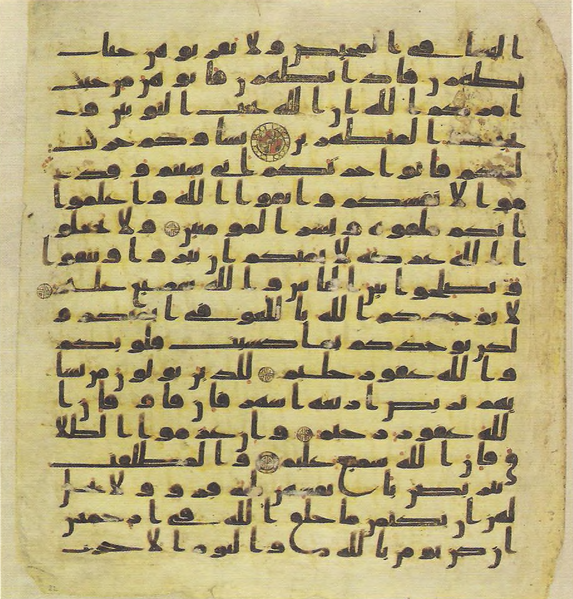 ا النسا في المحيض ولا تقربوهن حتى
يطهرن فاذا تطهرن فاتوهن من حيث
امركم الله ان الله يحب التوبين و
يحب المتطهرين نساوكم حرث
لكم فاتوا حرثكم انى شيتم وقد
موا لانفسكم واتقوا الله واعلموا
انكم ملقوه وبشر المومنين ولا تجعلو
ا الله عرضة لايمنكم ان تبروا وتتقوا
وتصلحوا بين الناس والله سميع عليم
لا يوخذكم الله باللغو في ايمنكم و
لكن يوخذكم بما كسبت قلوبكم
والله غفور حليم للذين يولون من نسا
يهم تربص اربعة اشهر فان فاو فان ا
لله غفور رحيم وان عزموا الطلا
ق فان الله سميع عليم والمطلقت
يتربصن بانفسهن ثلثة قروو ولا يحل
لهن ان يكتمن ما خلق الله في ارحمهن
ان كن يومن بالله واليوم الاخر